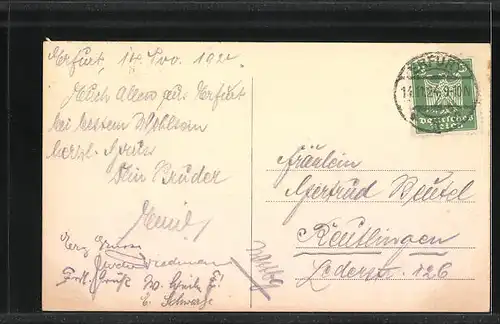 Erfurt, 14. Nov. 1924
Euch Allen aus Erfurt
bei bestem Wohlsein
herzl. Gruss
Dein Bruder
Herz. Grüsse
Frdl. Grüße W.
E. Schwarze
ERFURT
14.11.24. 9-10N
Deutsches
Reich
Fräulein
Gertrud Beutel
Reutlingen
Lederstr. 126
Wttbg